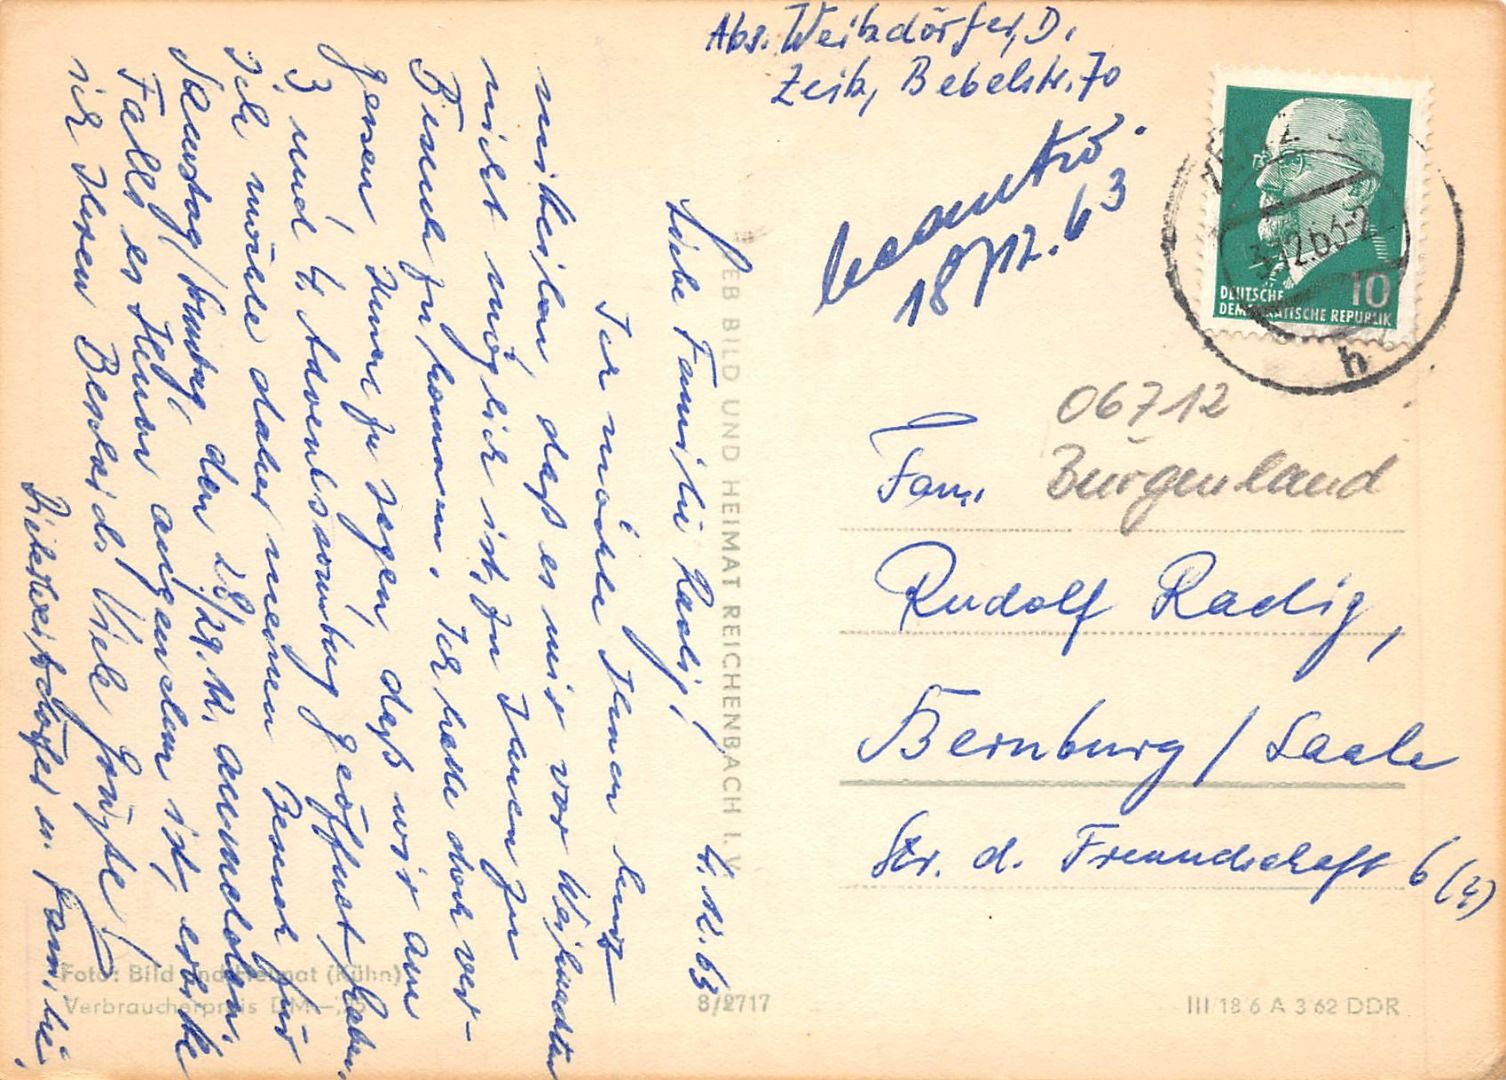 Abs. Weitzdörfer, D.
Zeitz, Bebelstr. 70
beantw.
18/12.63
ZEITZ
3.12.63-2
b
10
DEUTSCHE
DEMOKRATISCHE REPUBLIK
06712
Burgenland
Fam.
Rudolf Radig,
Bernburg / Saale
Str. d. Freundschaft 6 (4)
4.12.63
Liebe Familie Radig!
Ich möchte Ihnen kurz
mitteilen, daß es mir vor Weihnachten
nicht möglich ist, zu Ihnen zu
Besuch zu kommen. Ich hatte doch ver-
gessen, Ihnen zu sagen, daß wir am
3. und 4. Adventssonntag geöffnet haben.
Ich würde daher meinen Besuch für
Samstag/Sonntag, den 28/29.12. anmelden.
Falls es Ihnen angenehm ist, erbitte
ich Ihren Bescheid. Viele Grüße!
Weitzdörfer u. Familie.
VEB BILD UND HEIMAT REICHENBACH I. V.
Foto: Bild und Heimat (Kühn)
Verbraucherpreis DM -,
8/2717
III 18 6 A 3 62 DDR